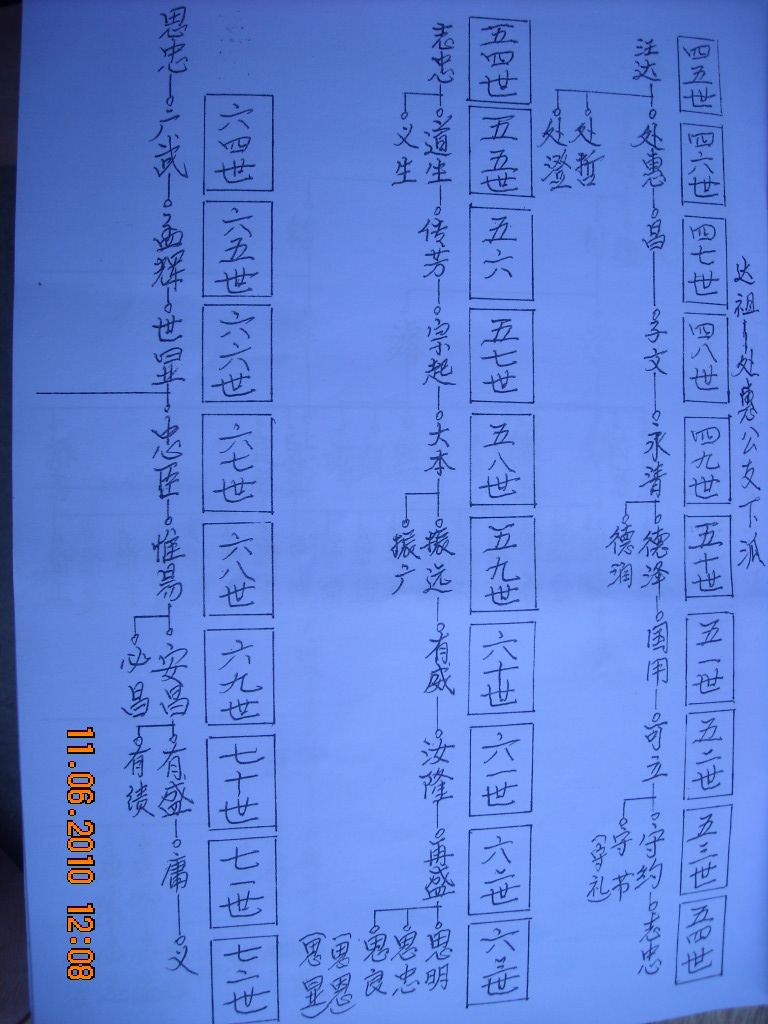 达祖一处惠公支下派
四五世 四六世 四七世 四八世 四九世 五十世 五一世 五二世 五三世 五四世
汪达 处惠 昌 子文 永清 德泽 国用 可立 守约 志忠
处哲 德润 守节
处澄 (守礼)
五四世 五五世 五六 五七世 五八世 五九世 六十世 六一世 六二世 六三世
志忠 道生 传芳 宗起 大本 振远 有威 汝隆 再盛 思明
义生 振广 思忠
思良
(思恩)
(思显)
六四世 六五世 六六世 六七世 六八世 六九世 七十世 七一世 七二世
思忠 广武 孟辉 世 忠臣 惟易 安昌 有盛 庸 义
必昌 有绩
11.06.2010 12:08